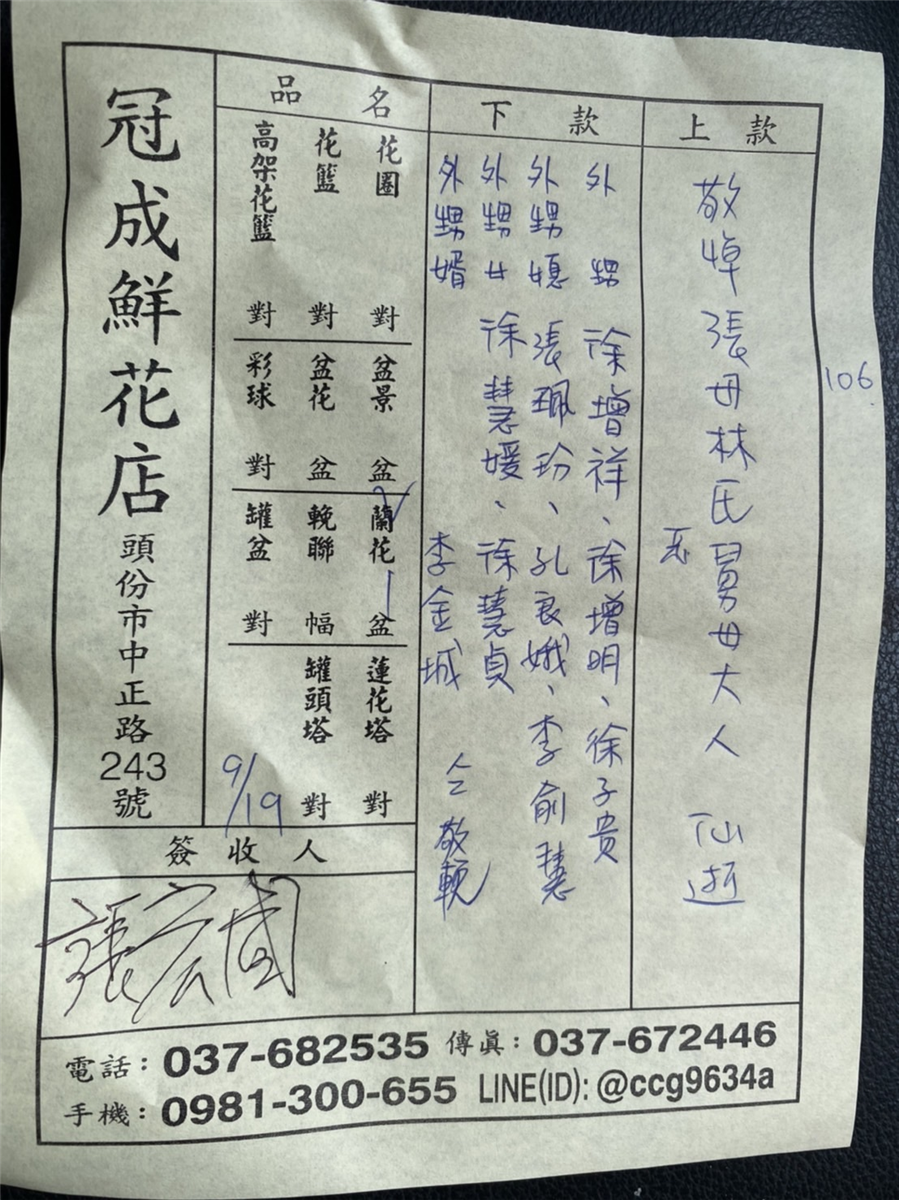 上款
敬悼張母林氏舅母大人 仙逝
106
下款
外甥 徐增祥、徐增明、徐子貴
外甥媳 張珮玲、孔良娥、李俞慧
外甥女 徐慧媛、徐慧貞
外甥婿 李金城 仝敬輓
品名
花圈 對
花籃 對
高架花籃 對
盆景 盆
盆花 盆
彩球 對
蘭花 1 盆
輓聯 幅
罐盆 對
蓮花塔 對
罐頭塔 對
9/19
簽收人
張宏國
冠成鮮花店 頭份市中正路243號
電話：037-682535 傳真：037-672446
手機：0981-300-655 LINE(ID): @ccg9634a